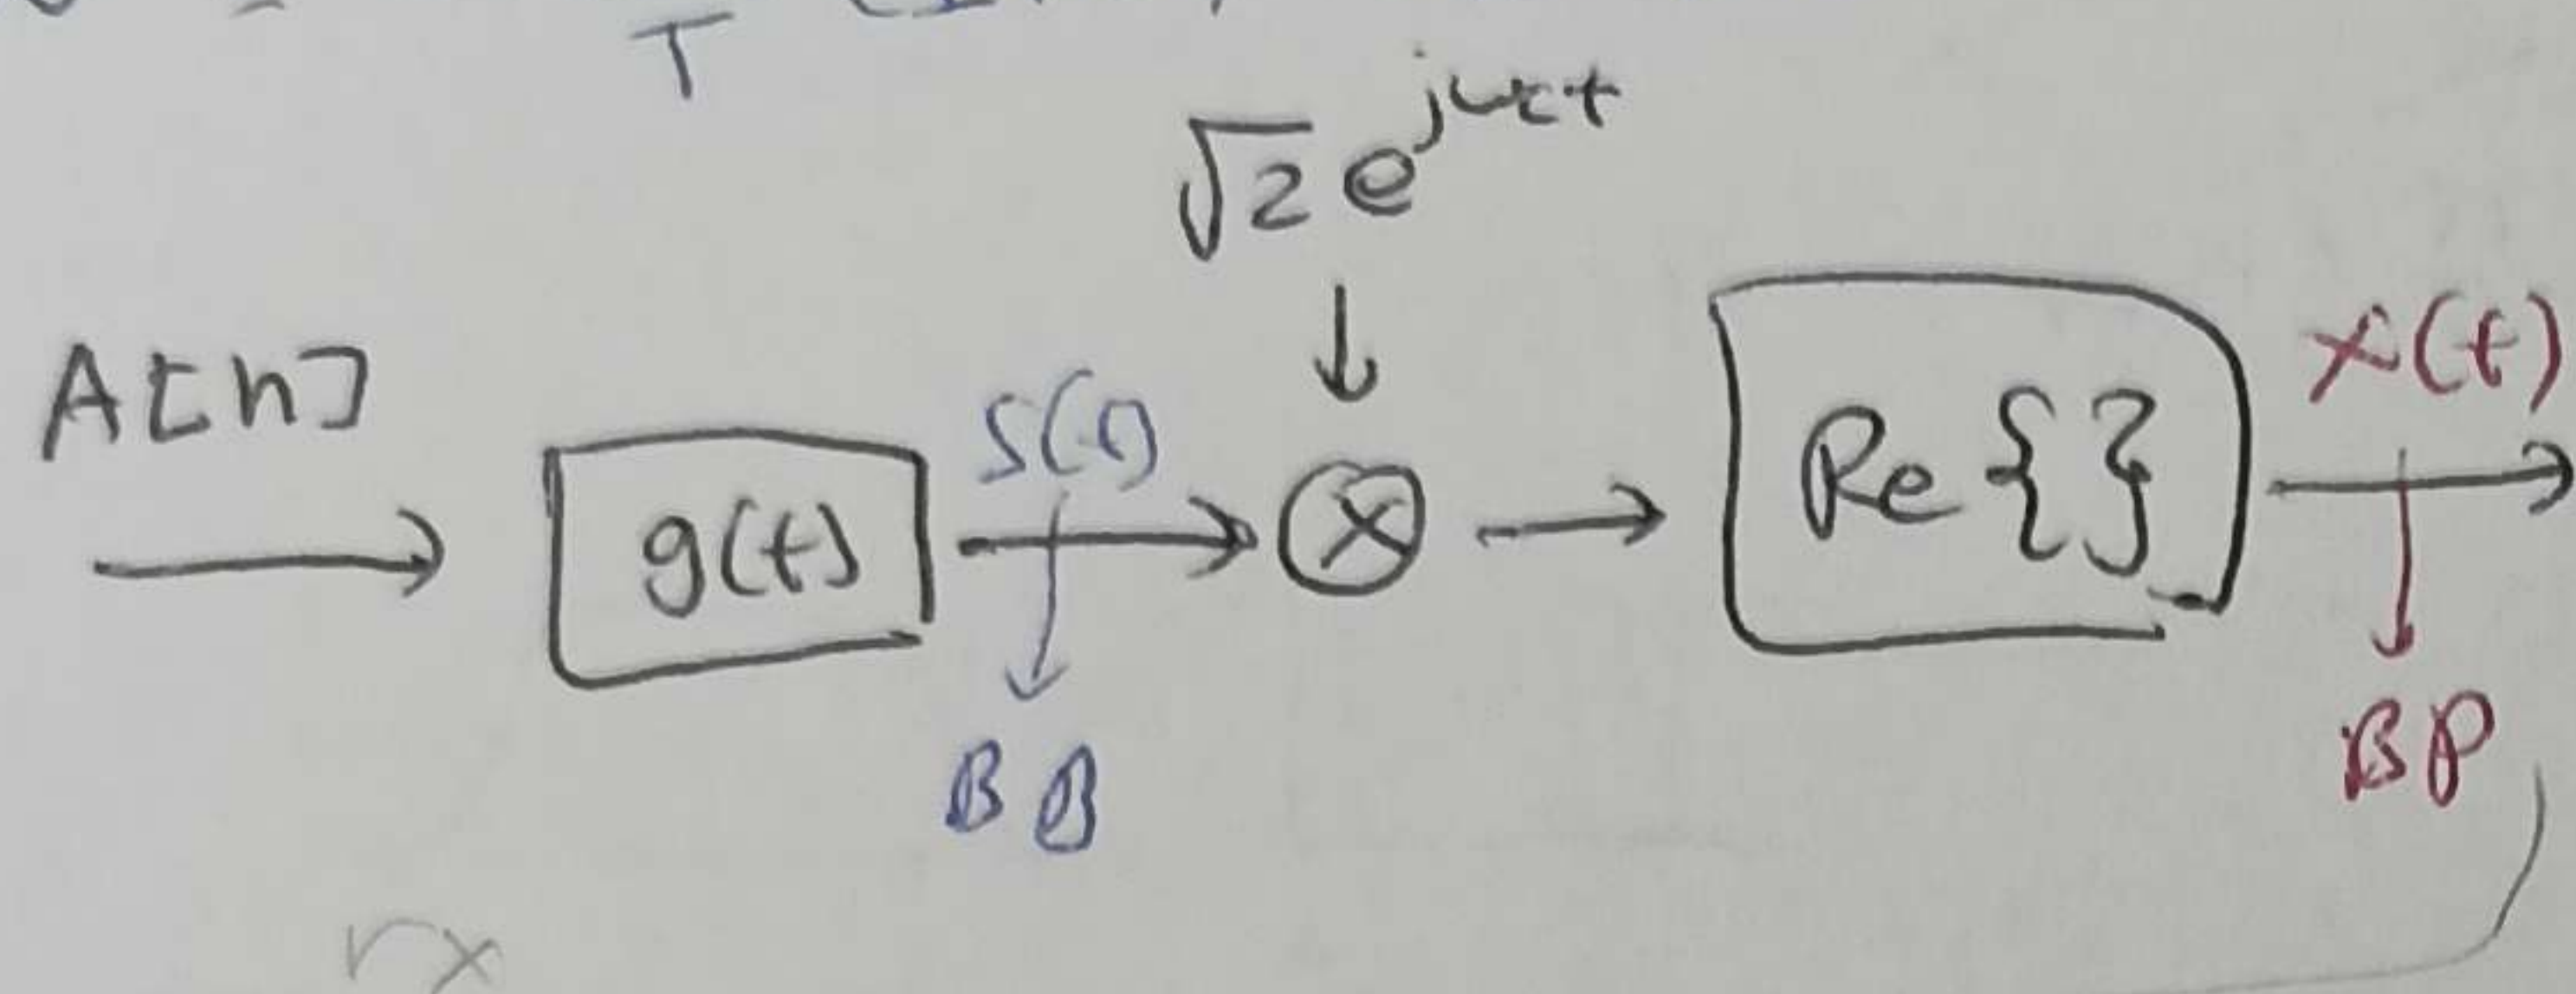 T
√2 e^jωct
A[n]
g(t)
S(t)
Re{}
x(t)
BB
BP
rx